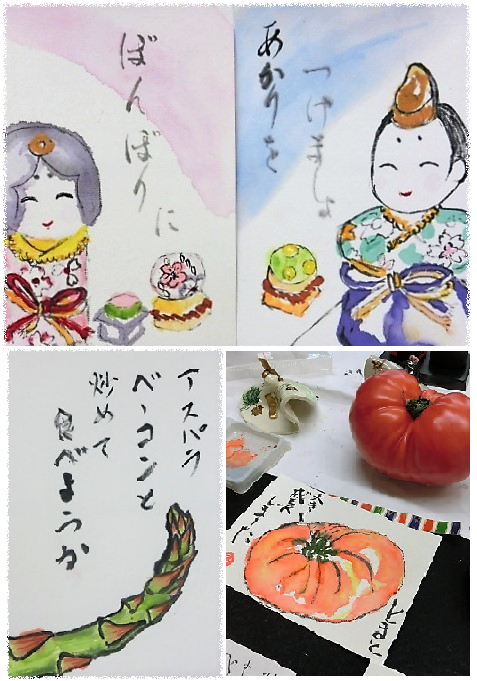 あかりを
つけましょ
ぼんぼりに
アスパラ
ベーコンと
炒めて
食べようか